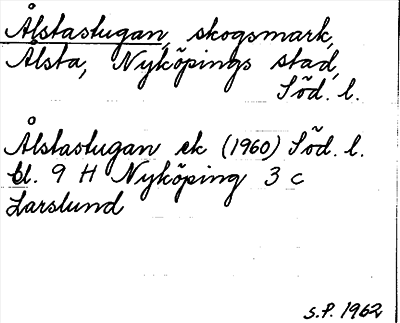 Ålstastugan, skogsmark,
Ålsta, Nyköpings stad,
Söd. l.
Ålstastugan ek (1960) Söd. l.
bl. 9 H Nyköping 3 c
Larslund
S.P. 1962